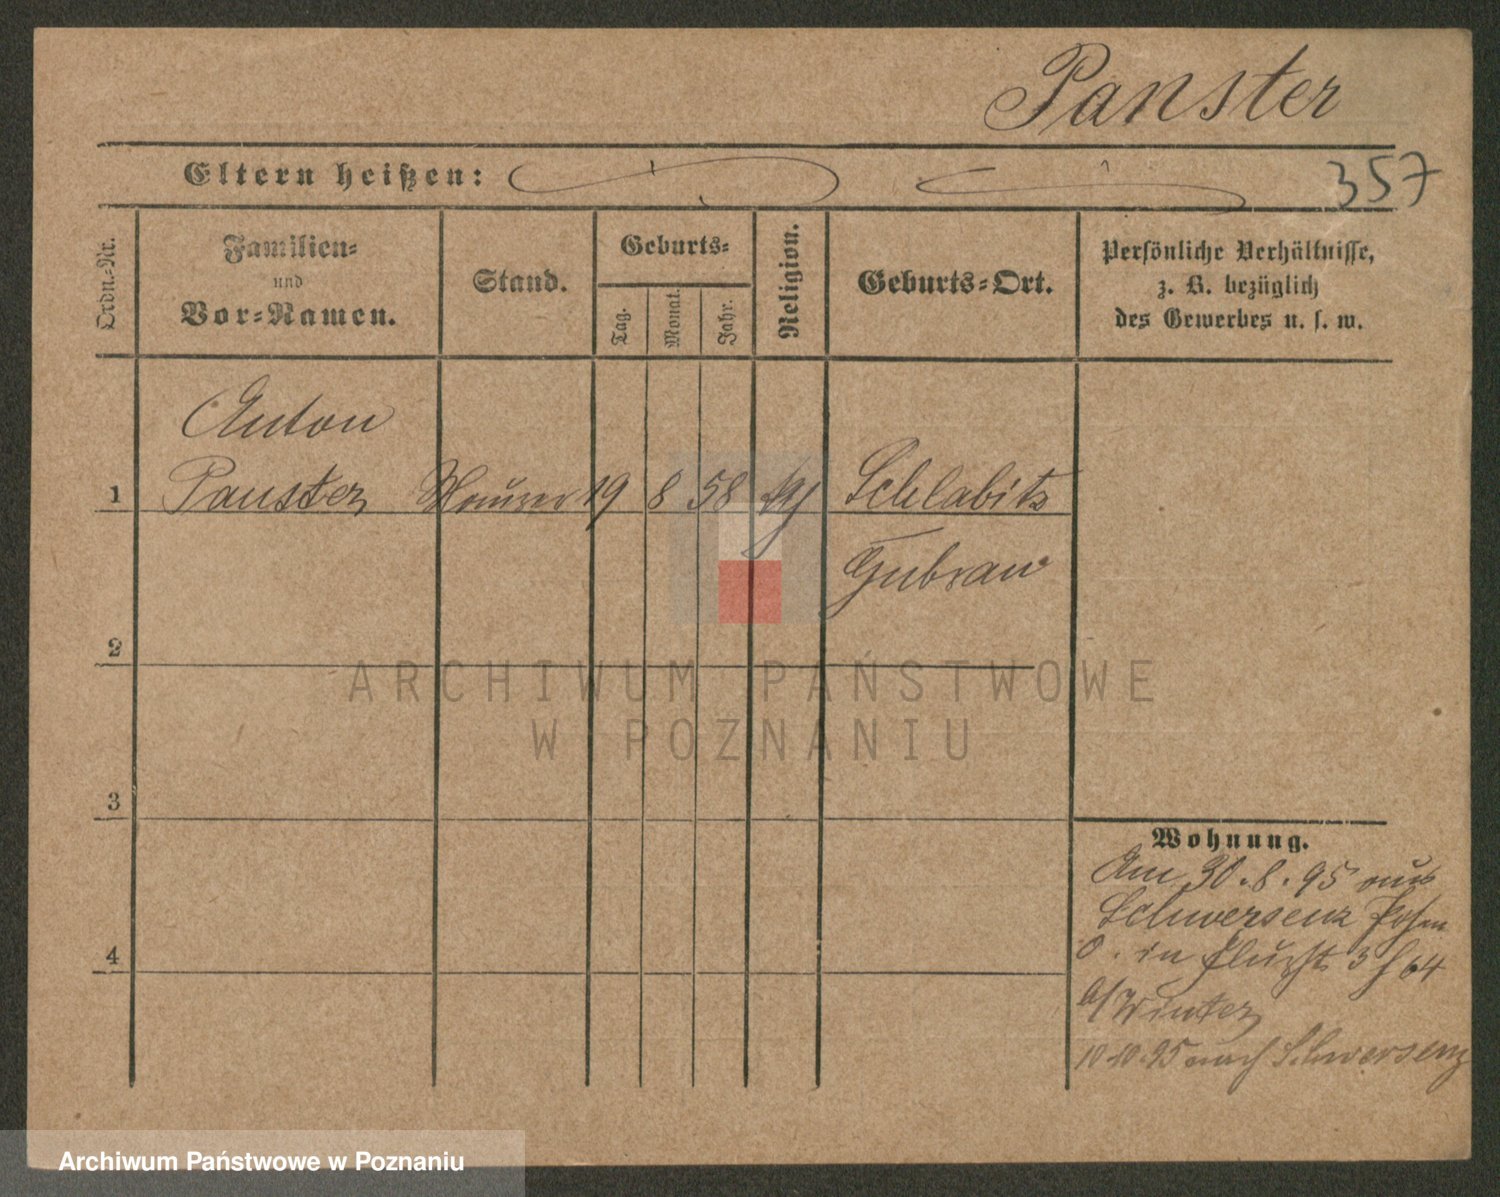 Panster
Eltern heißen:
357
Ordn.-Nr.
Familien-
und
Vor-Namen.
Stand.
Geburts-
Tag.
Monat.
Jahr.
Religion.
Geburts-Ort.
Persönliche Verhältnisse,
z. B. bezüglich
des Gewerbes u. s. w.
Anton
1 Panster Maurer 19 8 58 Schlabitz
Guhrau
2
3
4
ARCHIWUM PAŃSTWOWE
W POZNANIU
Wohnung.
Am 30.8.95 aus
Schwersenz Posen
O. in 3 64
b/ Winter
10.10.95 nach Schwersenz
Archiwum Państwowe w Poznaniu